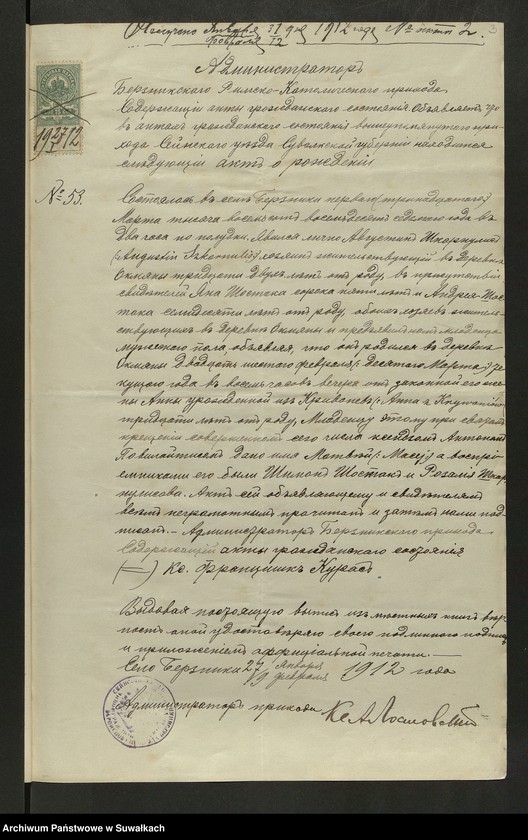 Получено Января 31 дня 1912 года № акта 2.
Февраля 12
3
Администраторъ
Берзникского Римско-Католического прихода
Содержащій акты гражданского состоянія объявляетъ что
въ актахъ гражданского состоянія вышеупомянутого при-
хода Сейнского уѣзда Сувалкской губерніи находится
слѣдующій актъ о рожденіи
1912
№ 53.
Состоялось въ селѣ Берзники перваго (тринадцатого)
Марта тысяча восемьсотъ восемьдесятъ седьмого года въ
два часа по полудни. Явился лично Августинъ Шкарнулисъ
хозяинъ жительствующій въ деревнѣ
Окмяны тридцати двухъ лѣтъ отъ роду, въ присутствіи
свидѣтелей Яна Шостака сорока пяти лѣтъ и Андрея Шос-
тока семидесяти лѣтъ отъ роду, обоихъ хозяевъ житель-
ствующихъ въ деревнѣ Окмяны и предъявилъ намъ младенца
мужеского пола объявляя, что онъ родился въ деревнѣ
Окмяны двадцать шестого февраля (десятого Марта) те-
кущого года въ восемь часовъ вечера отъ законной его же-
ны Анны урожденной изъ
тридцати лѣтъ отъ роду. Младенцу этому при святомъ
крещеніи совершенномъ сего числа ксендзомъ Антономъ
дано имя Матвѣй (Maciej) а воспрі-
емниками его были Шимонъ Шостакъ и Розалія Шкар-
нулисова. Актъ сей объявляющему и свидѣтелямъ
всѣмъ неграмотнымъ прочитанъ и затѣмъ нами под-
писанъ. — Администраторъ Берзникского прихода
Содержающій акты гражданского состоянія
(—) Кс. Францишекъ Курасъ
Выдавая настоящую выпись изъ мѣстныхъ книгъ вѣр-
ность оной удостовѣряю своею подлинною подписью
и приложеніемъ оффиціальной печати. —
Село Берзники 27 Января 1912 года
9 февраля
Администраторъ прихода Кс. А.
Archiwum Państwowe w Suwałkach